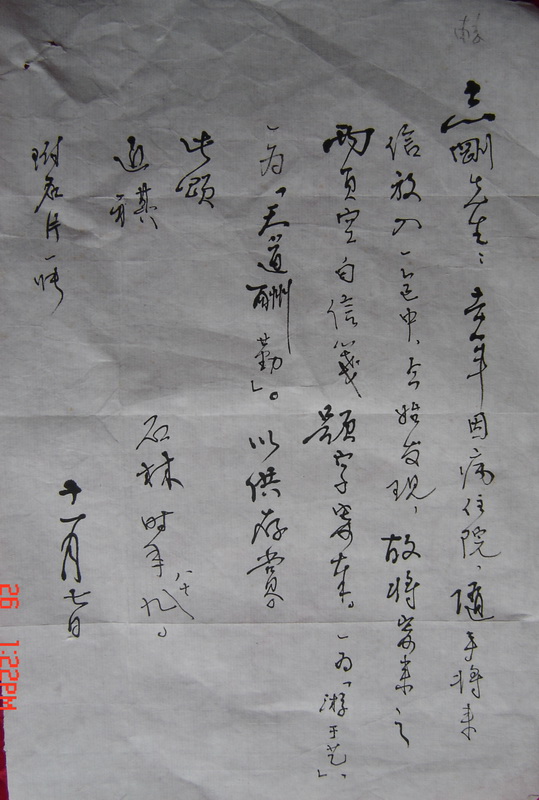 志刚先生：去年因病住院，随手将来
信放入一包中，今始发现，故将寄来之
两页空白信笺题字寄奉。一为「游于艺」，
一为「天道酬勤」。以供存赏。
此颂
近祺
石林 时年八十九。
附名片一张
十一月七日
26 1:22PM